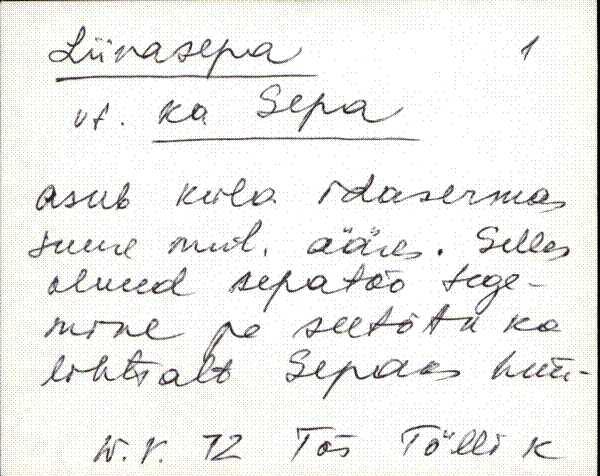 Liivasepa 1
vt. ka Sepa
asub küla idaservas
suure mnt. ääres. Selles
olnud sepatöö tege-
mine ja seetõttu ka
lihtsalt Sepaks hüü-
W. V. 72 Tõs Tõlli k